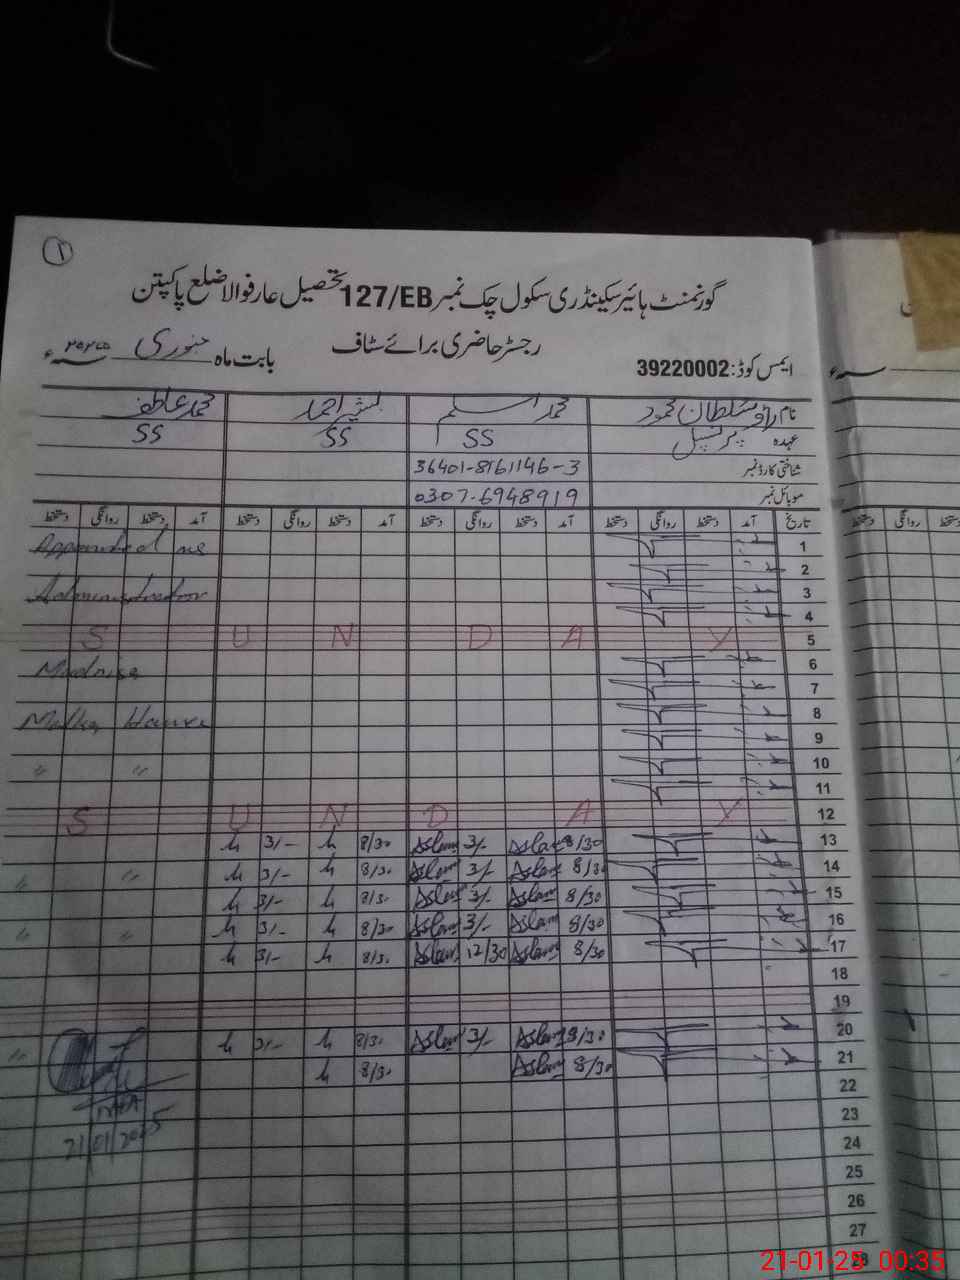 ۱
گورنمنٹ ہائیر سیکینڈری سکول چک نمبر 127/EB تحصیل عارفوالا ضلع پاکپتن
رجسٹر حاضری برائے سٹاف
بابت ماہ جنوری ۲۰۲۵ سنہ ء
ایمس کوڈ: 39220002
نام راؤ سلطان محمود محمد اسلم بشیر احمد محمد عاطف
عہدہ پرنسپل SS SS SS
شناختی کارڈ نمبر 36401-8561146-3
موبائل نمبر 0307-6948919
تاریخ آمد دستخط روانگی دستخط آمد دستخط روانگی دستخط آمد دستخط روانگی دستخط آمد دستخط روانگی دستخط
Appointed as 1
2
Administrator 3
4
S U N D A Y 5
Madrisa 6
7
Malka Hans 8
9
" " 10
11
S U N D A Y 12
3/- 8/30 Aslam 3/- Aslam 8/30 13
" " 3/- 8/30 Aslam 3/- Aslam 8/30 14
3/- 8/30 Aslam 3/- Aslam 8/30 15
" " 3/- 8/30 Aslam 3/- Aslam 8/30 16
3/- 8/30 Aslam 12/30 Aslam 8/30 17
18
19
" 3/- 8/30 Aslam 3/- Aslam 8/30 20
8/30 Aslam 8/30 21
22
23
21/01/2025
24
25
26
27
28
21-01-25 00:35